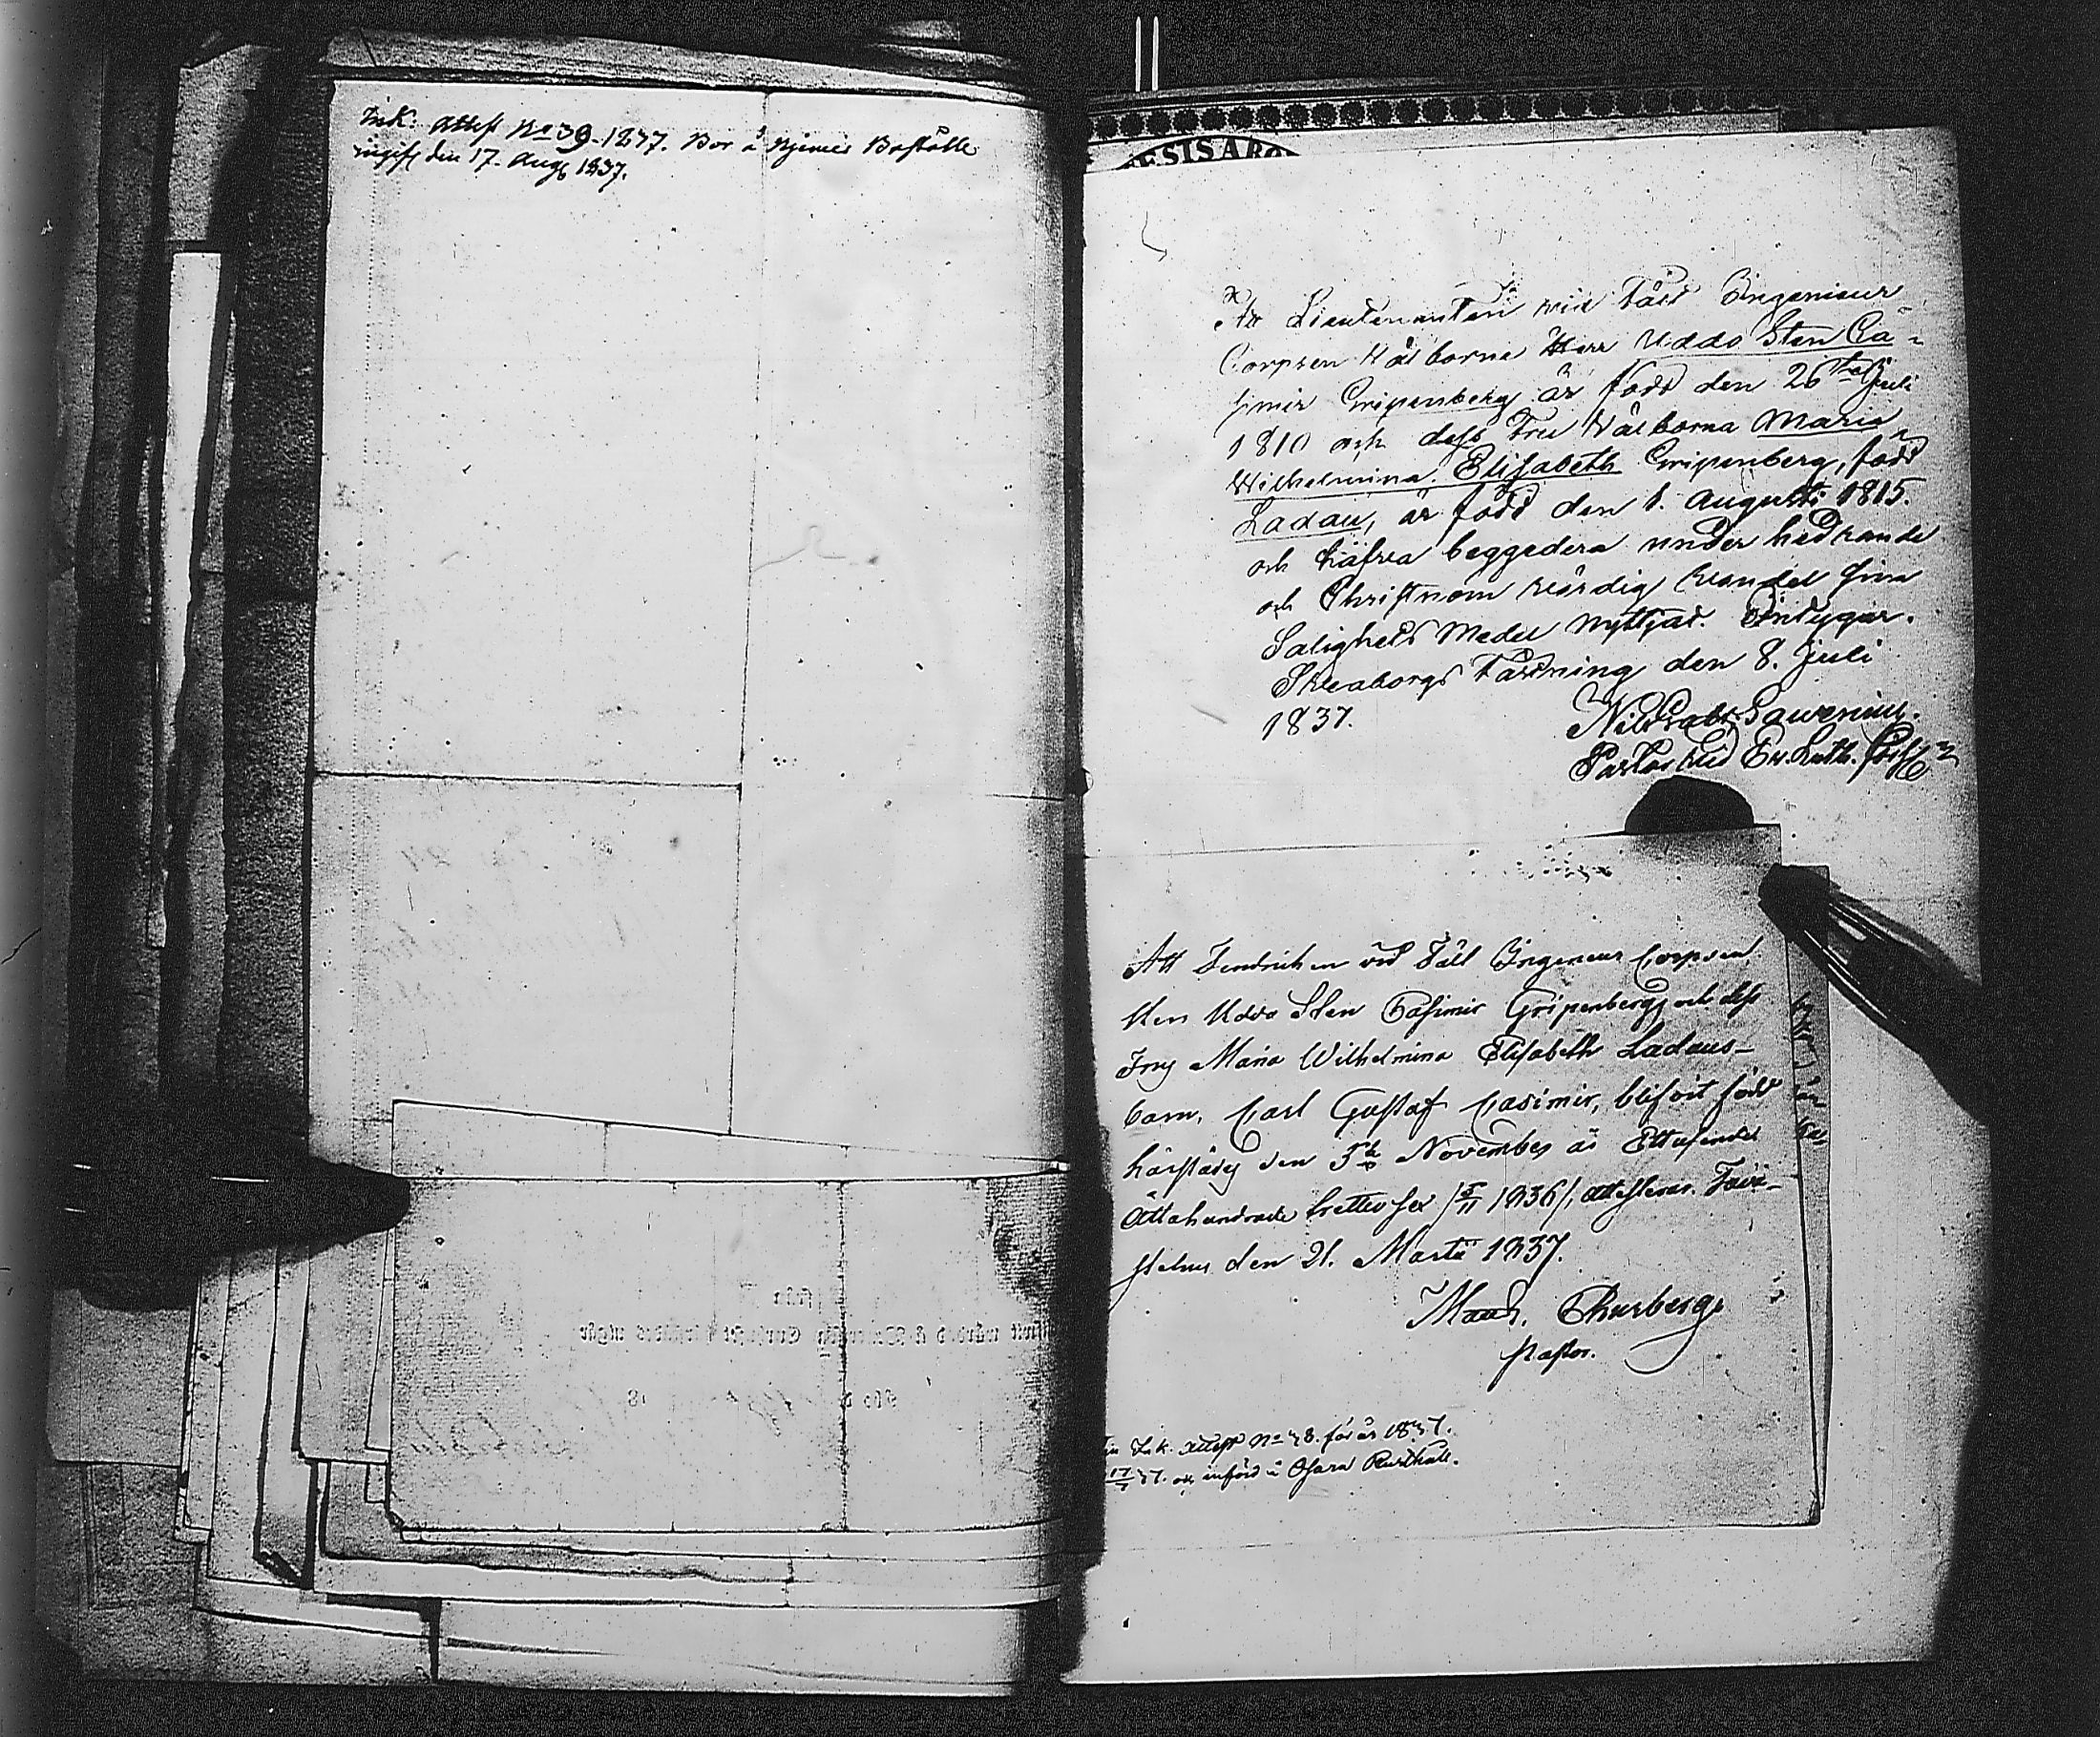 Ink. Attest No 39. 1837. Bor å Boställe
ingifv. den 17. Aug. 1837.
ESIS ABO
Att Lieutenanten vid Fält Ingenieur
Corpsen Wälborne Herr Uddo Sten Ca-
simir Gripenberg är född den 26 Juli
1810 och dess Fru Wälborna Maria
Wilhelmina Elisabeth Gripenberg, född
Ladau, är född den 1. Augusti 1815.
och hafva beggedera under hedrande
och Christnom värdig vandel sina
Salighets Medel nyttjat. Intygar.
Sveaborgs Fästning den 8. Juli
1837.
Sawenius.
Pastor vid Ev. Luth.
Att Fendriken vid Fält Ingenieur Corpsen
Herr Uddo Sten Casimir Gripenberg och dess
Fru Maria Wilhelmina Elisabeth Ladaus-
barn, Carl Gustaf Casimir, blifvit född
härstädes den 5te November år Ettusende
Åttahundrade trettio sex /5/11 1836/, attesteras. Tava-
stehus den 21. Martii 1837.
Thurberg
Pastor.
Ink. Attest No 38. för år 1837.
17/ 37. och införd i